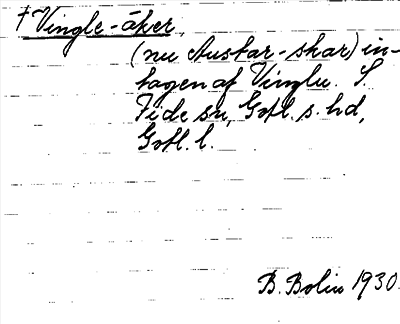 † Vingle-åker,
(nu Austar-skar) in-
tagen af Vinglu. S.
Fide sn, Gotl. s. hd,
Gotl. l.
B. Bolin 1930.